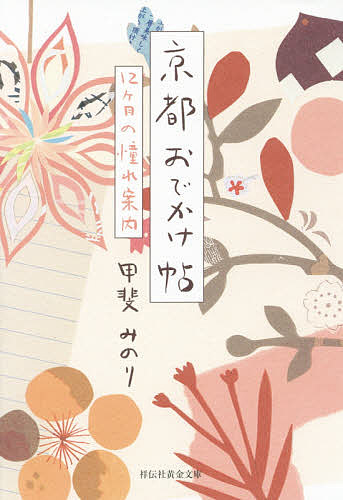 京都おでかけ帖
12ヶ月の憧れ案内
甲斐みのり
祥伝社黄金文庫